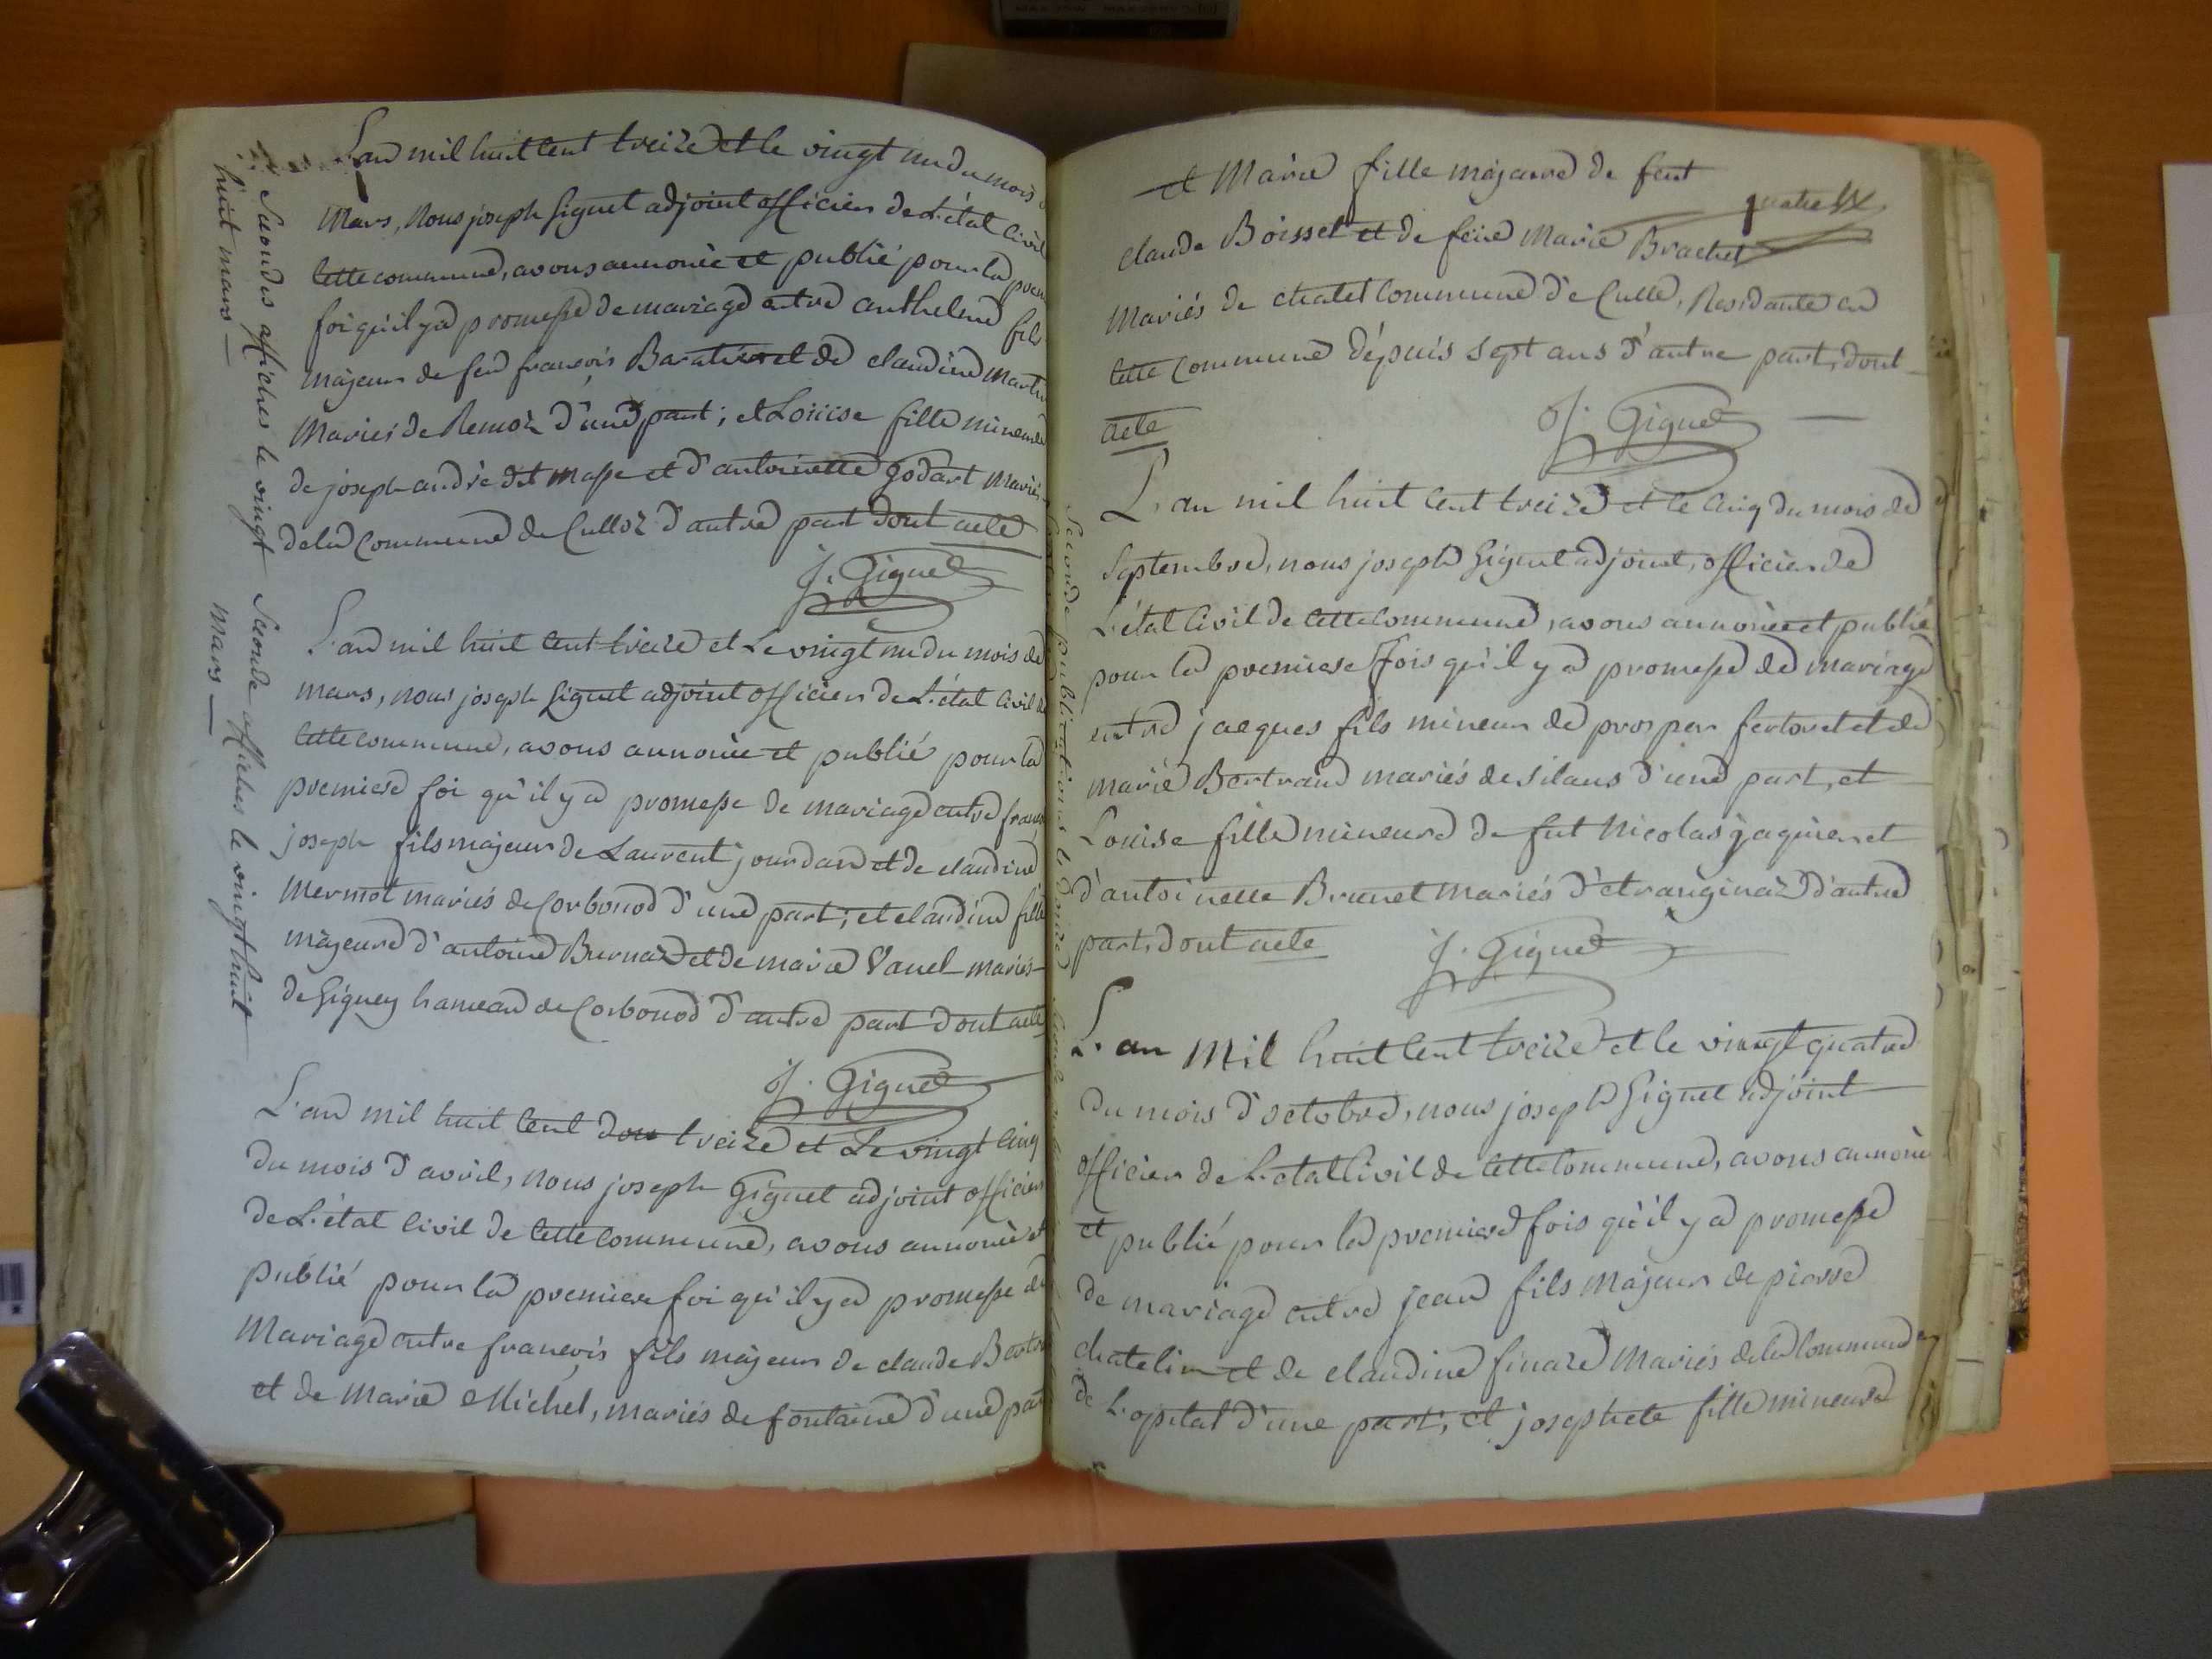 L'an mil huit cent treize et le vingt un du mois
mars, nous joseph Giguet adjoint officier de L'état civil
cette commune, avons annoncé et publié pour la
foi qu'il y a promesse de mariage entre anthelme fils
majeur de feu françois Baratier et de claudine
mariés de Remoz d'une part; et Loüise fille mineure
de joseph andré dit masse et d'antoinette godart mariés
de la commune de Culloz d'autre part dont acte
J. Giguet
Secondes affiches le vingt
huit mars
L'an mil huit cent treize et Le vingt un du mois de
mars, nous joseph Giguet adjoint officier de L'état civil de
cette commune, avons annoncé et publié pour la
premiere foi qu'il y a promesse de mariage entre
joseph fils majeur de Laurent jourdan et de claudine
mermot mariés de Corbonod d'une part; et claudine fille
majeure d'antoine Burnaz et de marie Vanel mariés
de Gigney hameau de Corbonod d'autre part dont acte
J. Giguet
Seconde affiches le vingt huit
mars
L'an mil huit cent treize et Le vingt cinq
du mois d'avril, nous joseph Giguet adjoint officier
de L'état civil de cette commune, avons annoncé et
publié pour la premiere foi qu'il y a promesse de
Mariage entre françois fils majeur de claude
et de Marie Michel, mariés de fontaine d'une part
et Marie fille majeure de feut
quatre
claude Boisset et de feüe Marie Brachet
Mariés de chatel commune de Culle, Residante en
cette commune dépuis sept ans d'autre part, dont
acte
J. Giguet
L'an mil huit cent treize et le cinq du mois de
Septembre, nous joseph Giguet adjoint, officier de
L'état Civil de cette commune, avons annoncé et publié
pour la premiere fois qu'il y a promesse de mariage
entre jacques fils mineur de prosper fertoret et de
marie Bertrand mariés de silans d'une part, et
Louise fille mineure de fut Nicolas jaquier et
d'antoinette Brunet mariés d'etranginaz d'autre
part, dont acte
J. Giguet
Seconde publications le
L'an mil huit cent treize et le vingt quatre
du mois d'octobre, nous joseph Giguet adjoint
officier de L'etat Civil de cette Commune, avons annoncé
et publié pour la premiere fois qu'il y a promesse
de mariage entre jean fils majeur de pierre
chatelin et de claudine finaze Mariés de la Commune
de L'opital d'une part; et josephete fille mineure